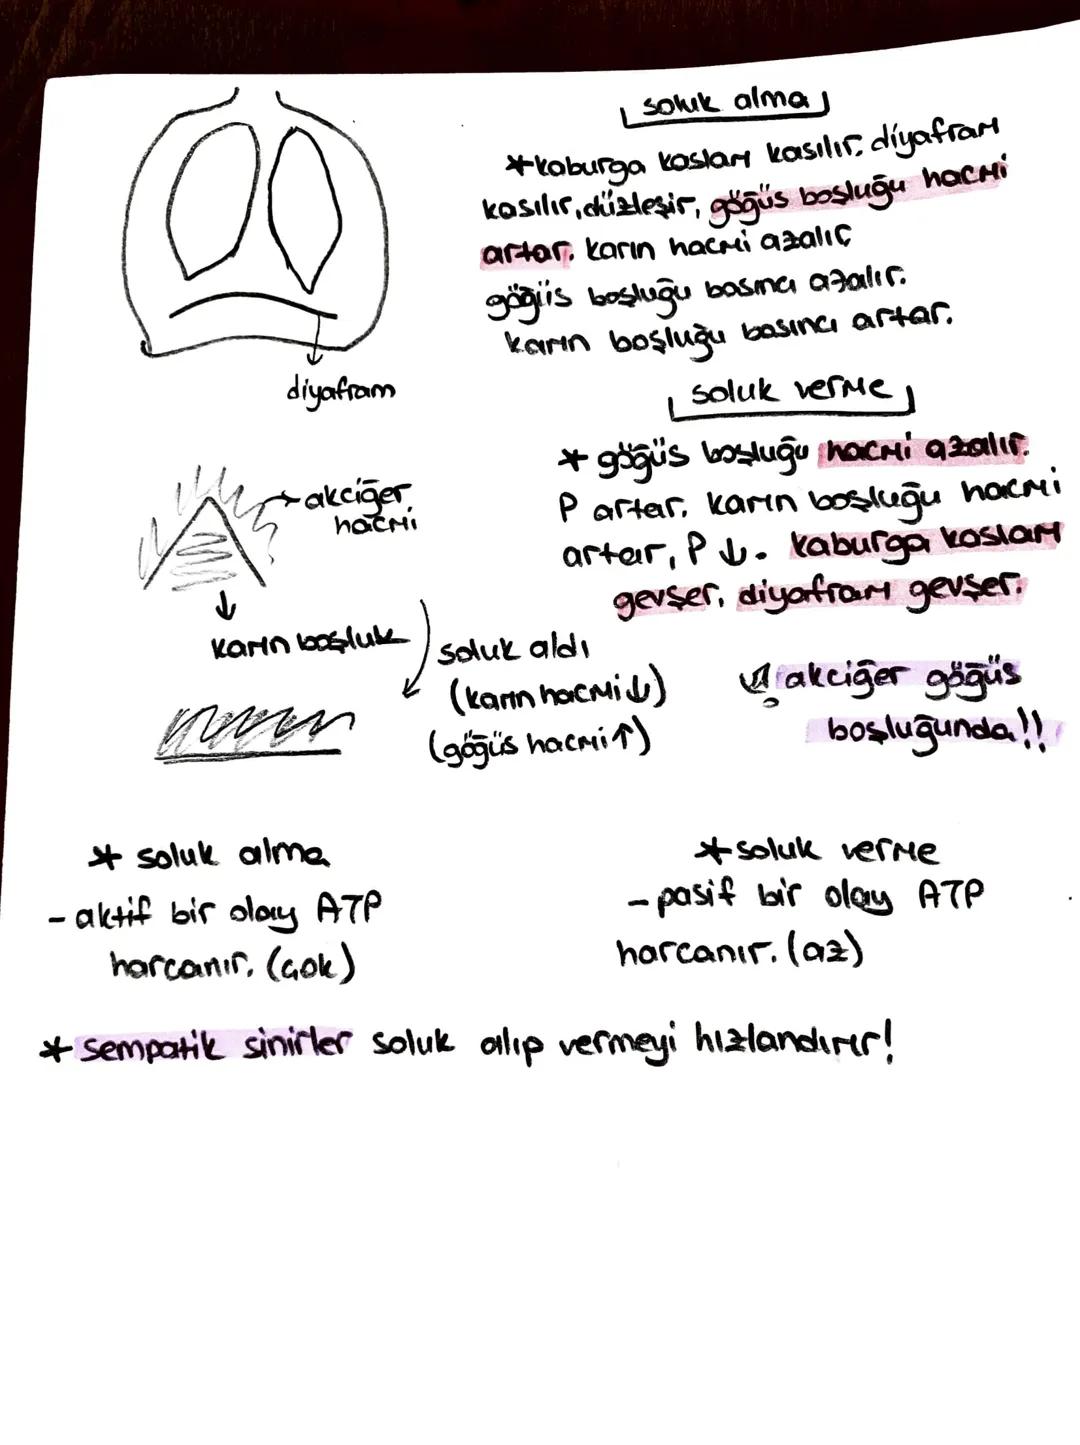 soluk alma
*kaburga kasları kasılır. diyafram
kasılır, düzleşir, göğüs boşluğu hacmi
artar. karın hacmi azalır
göğüs boşluğu basıncı azalır.
karın boşluğu basıncı artar.
diyafram
soluk verme
* göğüs boşluğu hacmi azalır.
P artar. karın boşluğu hacmi
artar, P ↓. kaburga kasları
gevşer, diyafram gevşer.
akciğer
hacmi
karın boşluk
soluk aldı
(karın hacmi ↓)
(göğüs hacmi ↑)
akciğer göğüs
boşluğunda!!
* soluk alma
- aktif bir olay ATP
harcanır. (çok)
* soluk verme
- pasif bir olay ATP
harcanır. (az)
* sempatik sinirler soluk alıp vermeyi hızlandırır!